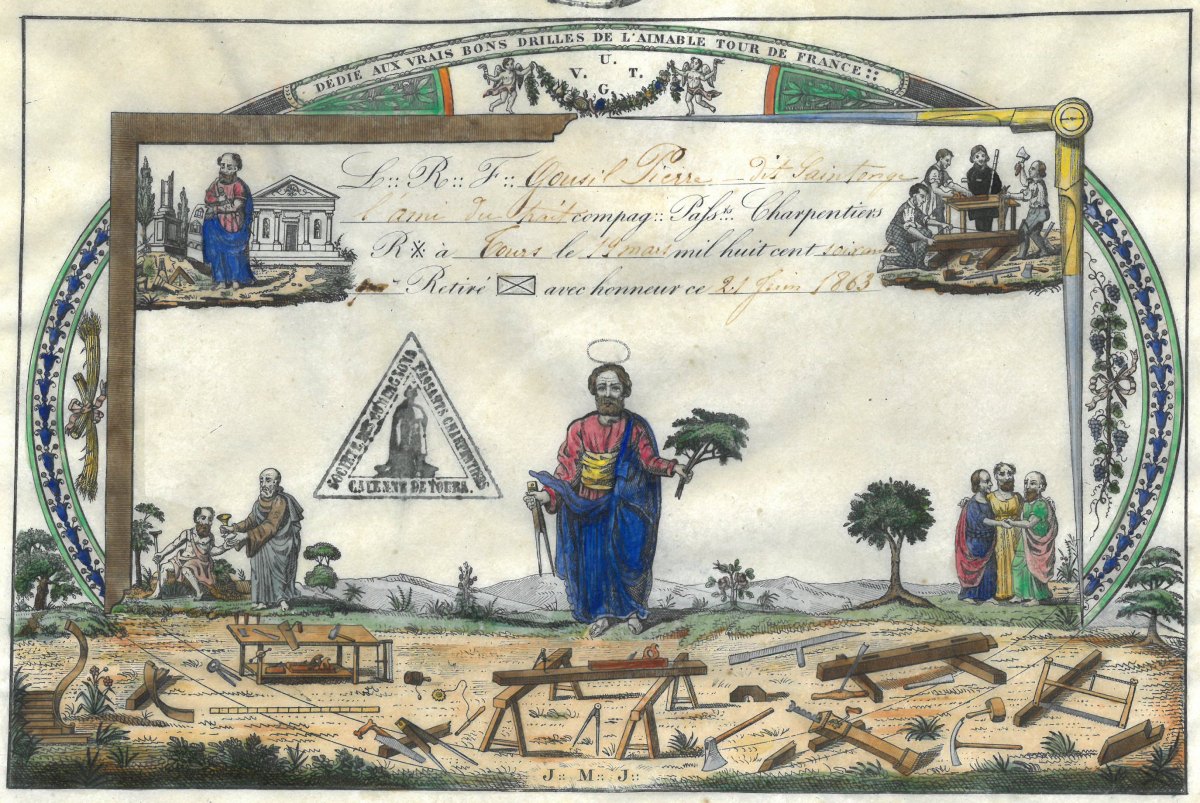 DÉDIÉ AUX VRAIS BONS DRILLES DE L'AIMABLE TOUR DE FRANCE::
U.
V. T.
G
L:: R:: F:: Gousil Pierre dit Saintonge
l'ami du trait compag:: Pass.ts Charpentiers
R à Tours le 19 mars mil huit cent soixante
Retiré avec honneur ce 21 Juin 1863
SOCIÉTÉ DES COMPAGNONS PASSANTS CHARPENTIERS
CAYENNE DE TOURS.
J:: M:: J::